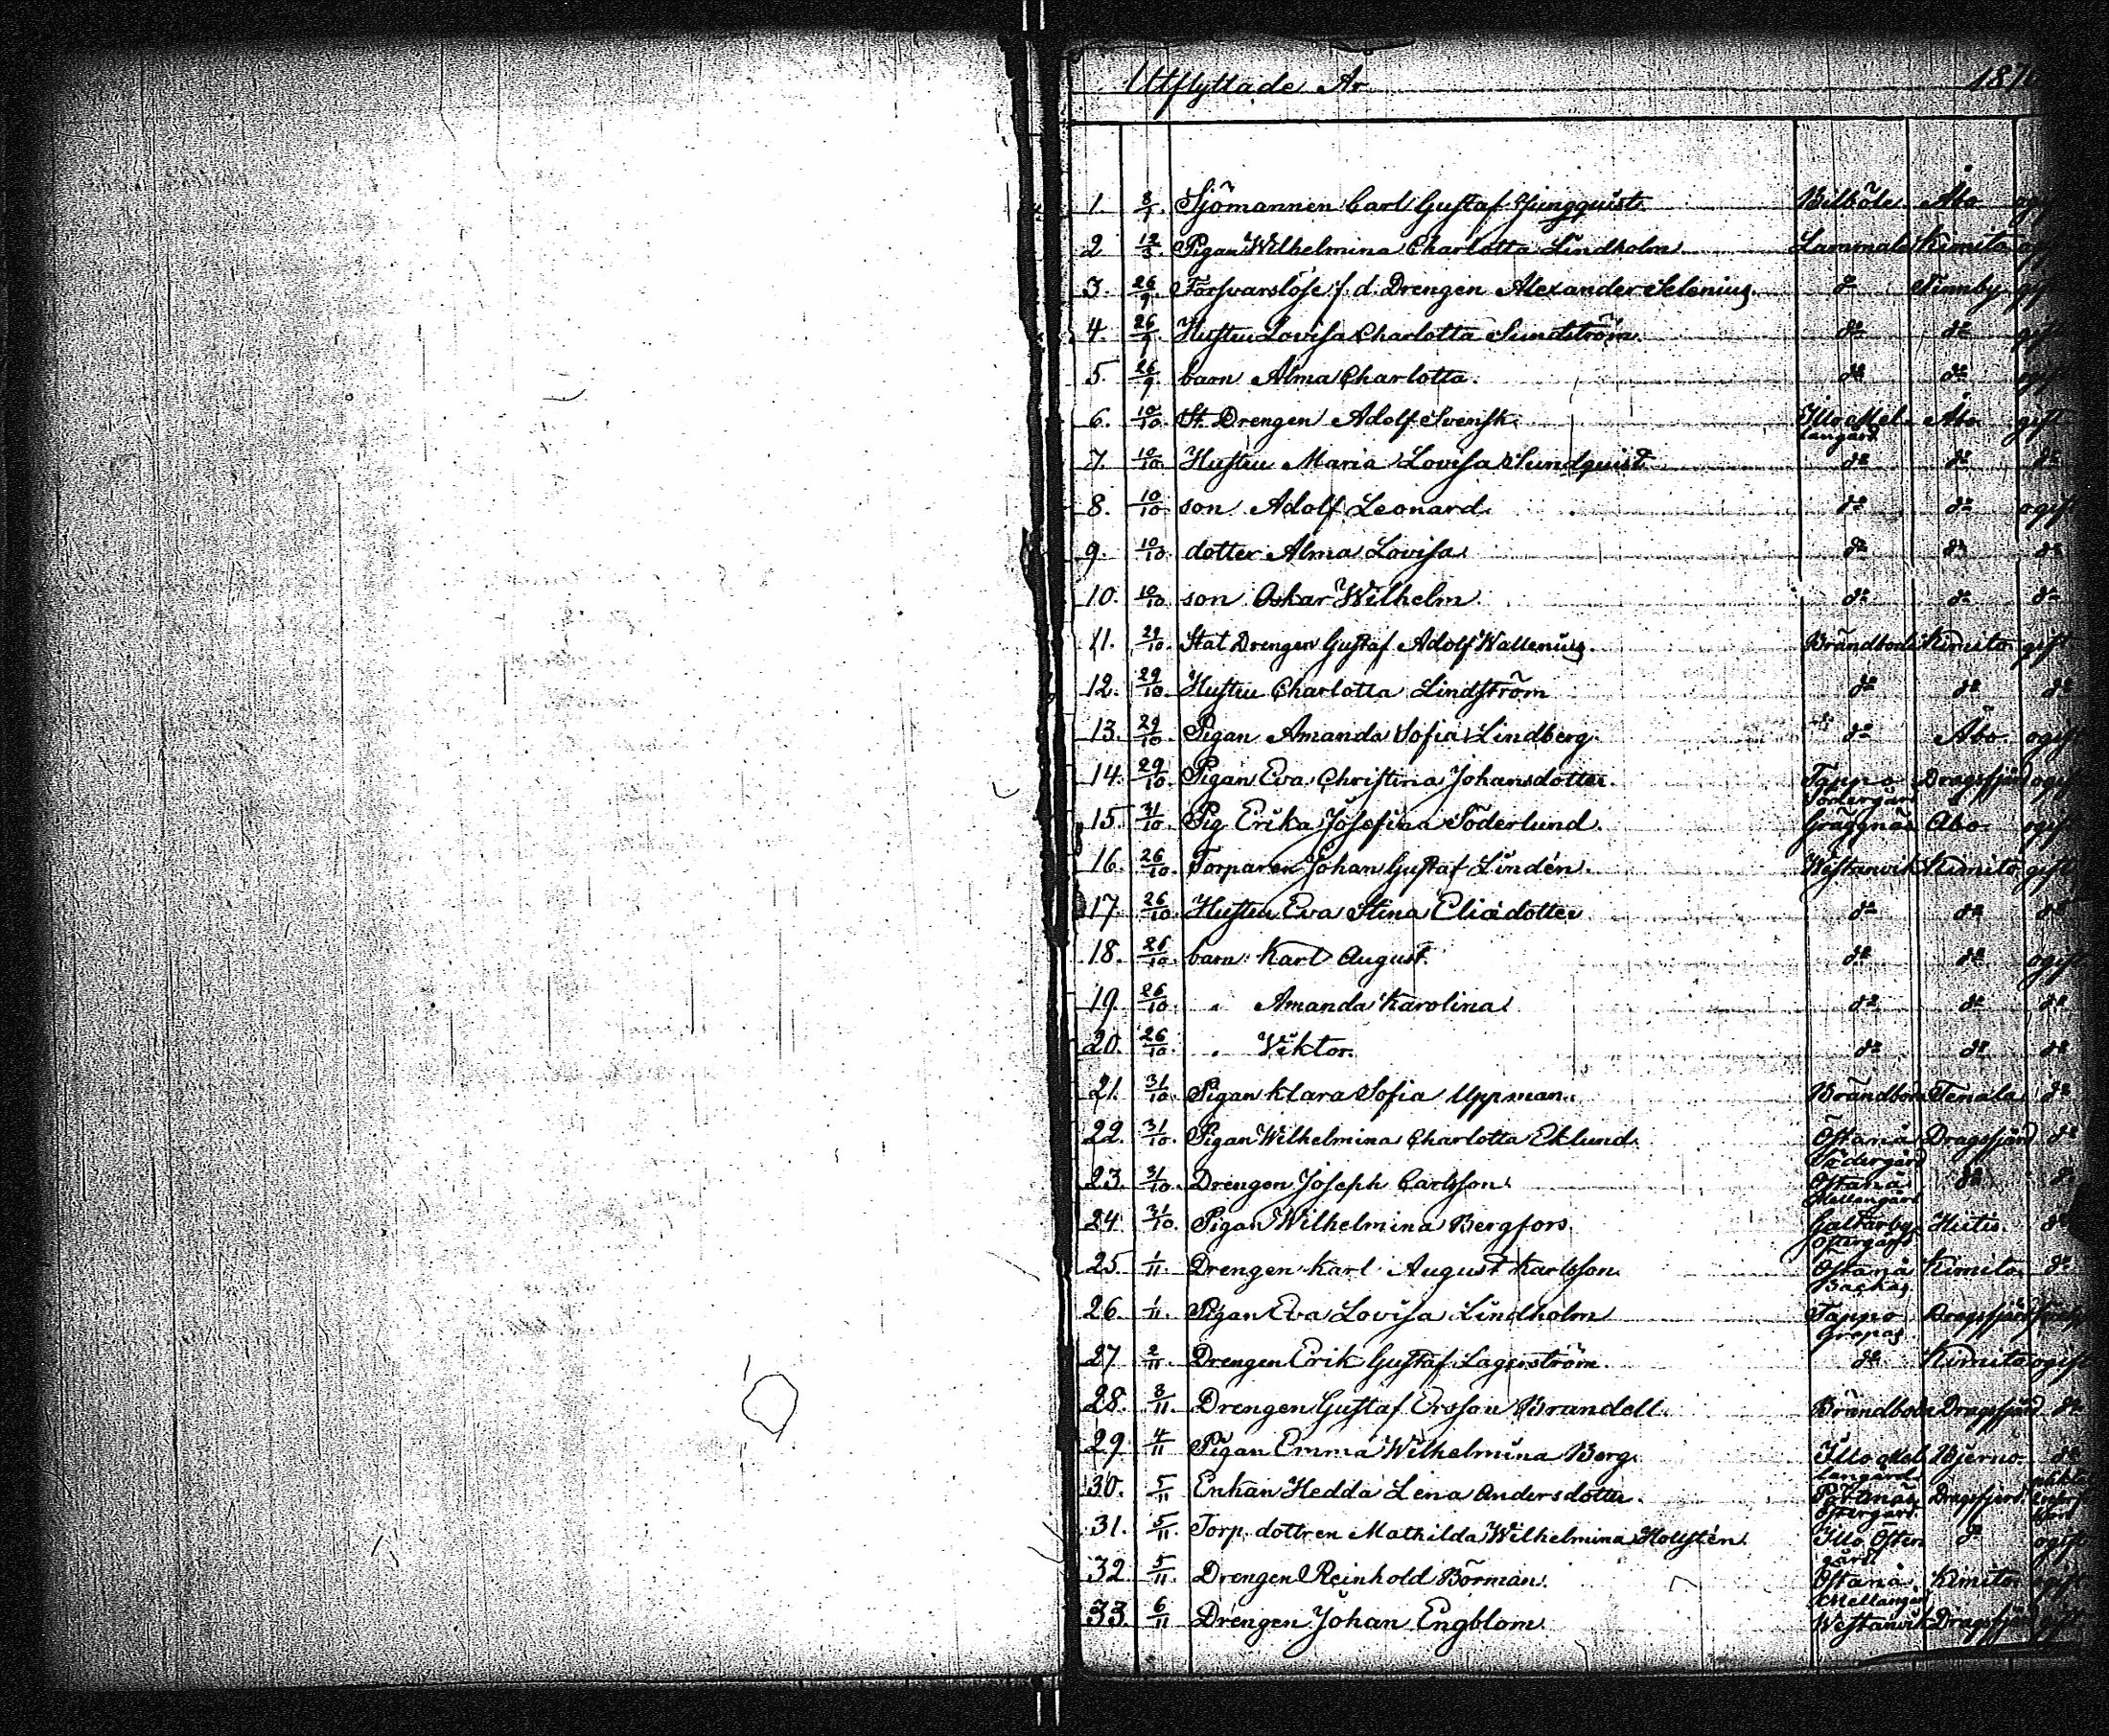 Utflyttade År 187
1. 8/1. Sjömannen Carl Gustaf Ljungquist. Bilböle Åbo
2 12/3. Pigan Wilhelmina Charlotta Lindholm Lammala Kimito
3. 26/9. Försvarslöse f. d. Drengen Alexander Selenius. do Finnby gif
4. 26/9. Hustru Lovisa Charlotta Sundström. do do gif
5. 26/9. barn Alma Charlotta. do do ogif
6. 10/10. St. Drengen Adolf Svensk. Illo Mellangård Åbo gift
7. 10/10 Hustru Maria Lovisa Sundquist do do do
8. 10/10. son Adolf Leonard. do do ogif
9. 10/10. dotter Alma Lovisa do do do
10. 10/10 son Oskar Wilhelm. do do do
11. 29/10. Stat Drengen Gustaf Adolf Wallenius. Brändboda Kimito gift
12. 29/10. Hustru Charlotta Lindström do do do
13. 29/10. Pigan Amanda Sofia Lindberg. do Åbo ogif
14. 29/10. Pigan Eva Christina Johansdotter. Tappo Södergård Dragsfjärd ogif
15. 31/10. Pig. Erika Josefina Söderlund. Gräggnäs Åbo. ogift
16. 26/10. Torparen Johan Gustaf Lindén. Westanvik Kimito gift
17. 26/10. Hustru Eva Stina Eliædotter do do do
18. 26/10. barn Karl August. do do ogift
19. 26/10. " Amanda Karolina do do do
20. 26/10. " Viktor. do do do
21. 31/10. Pigan Klara Sofia Uppman. Brändboda Tenala do
22. 31/10. Pigan Wilhelmina Charlotta Eklund. Östanå Södergård Dragsfjärd do
23. 31/10. Drengen Joseph Carlsson. Östanå Mellangård do do
24. 31/10. Pigan Wilhelmina Bergfors. Galtarby Östergård Hitis. do
25. 1/11. Drengen Karl August Karlsson. Östanå Backas Kimito. do
26. 1/11. Pigan Eva Lovisa Lindholm Tappo Gropas Dragsfjärd
27 2/11. Drengen Erik Gustaf Lagerström. do Kimito ogift
28. 3/11. Drengen Gustaf Ersson Brandell. Brändboda Dragsfjärd do
29. 4/11 Pigan Emma Wilhelmina Berg. Illo Mellangård Bjerno do
30. 5/11 Enkan Hedda Lena Andersdotter. Pörtnäs Östergård Dragsfjerd
31. 5/11. Torp. dottren Mathilda Wilhelmina Hollstén Illo Östergård do ogift
32. 5/11. Drengen Reinhold Börman. Östanå Mellangård Kimito ogift
33. 6/11 Drengen Johan Engblom Westanvik Dragsfjä